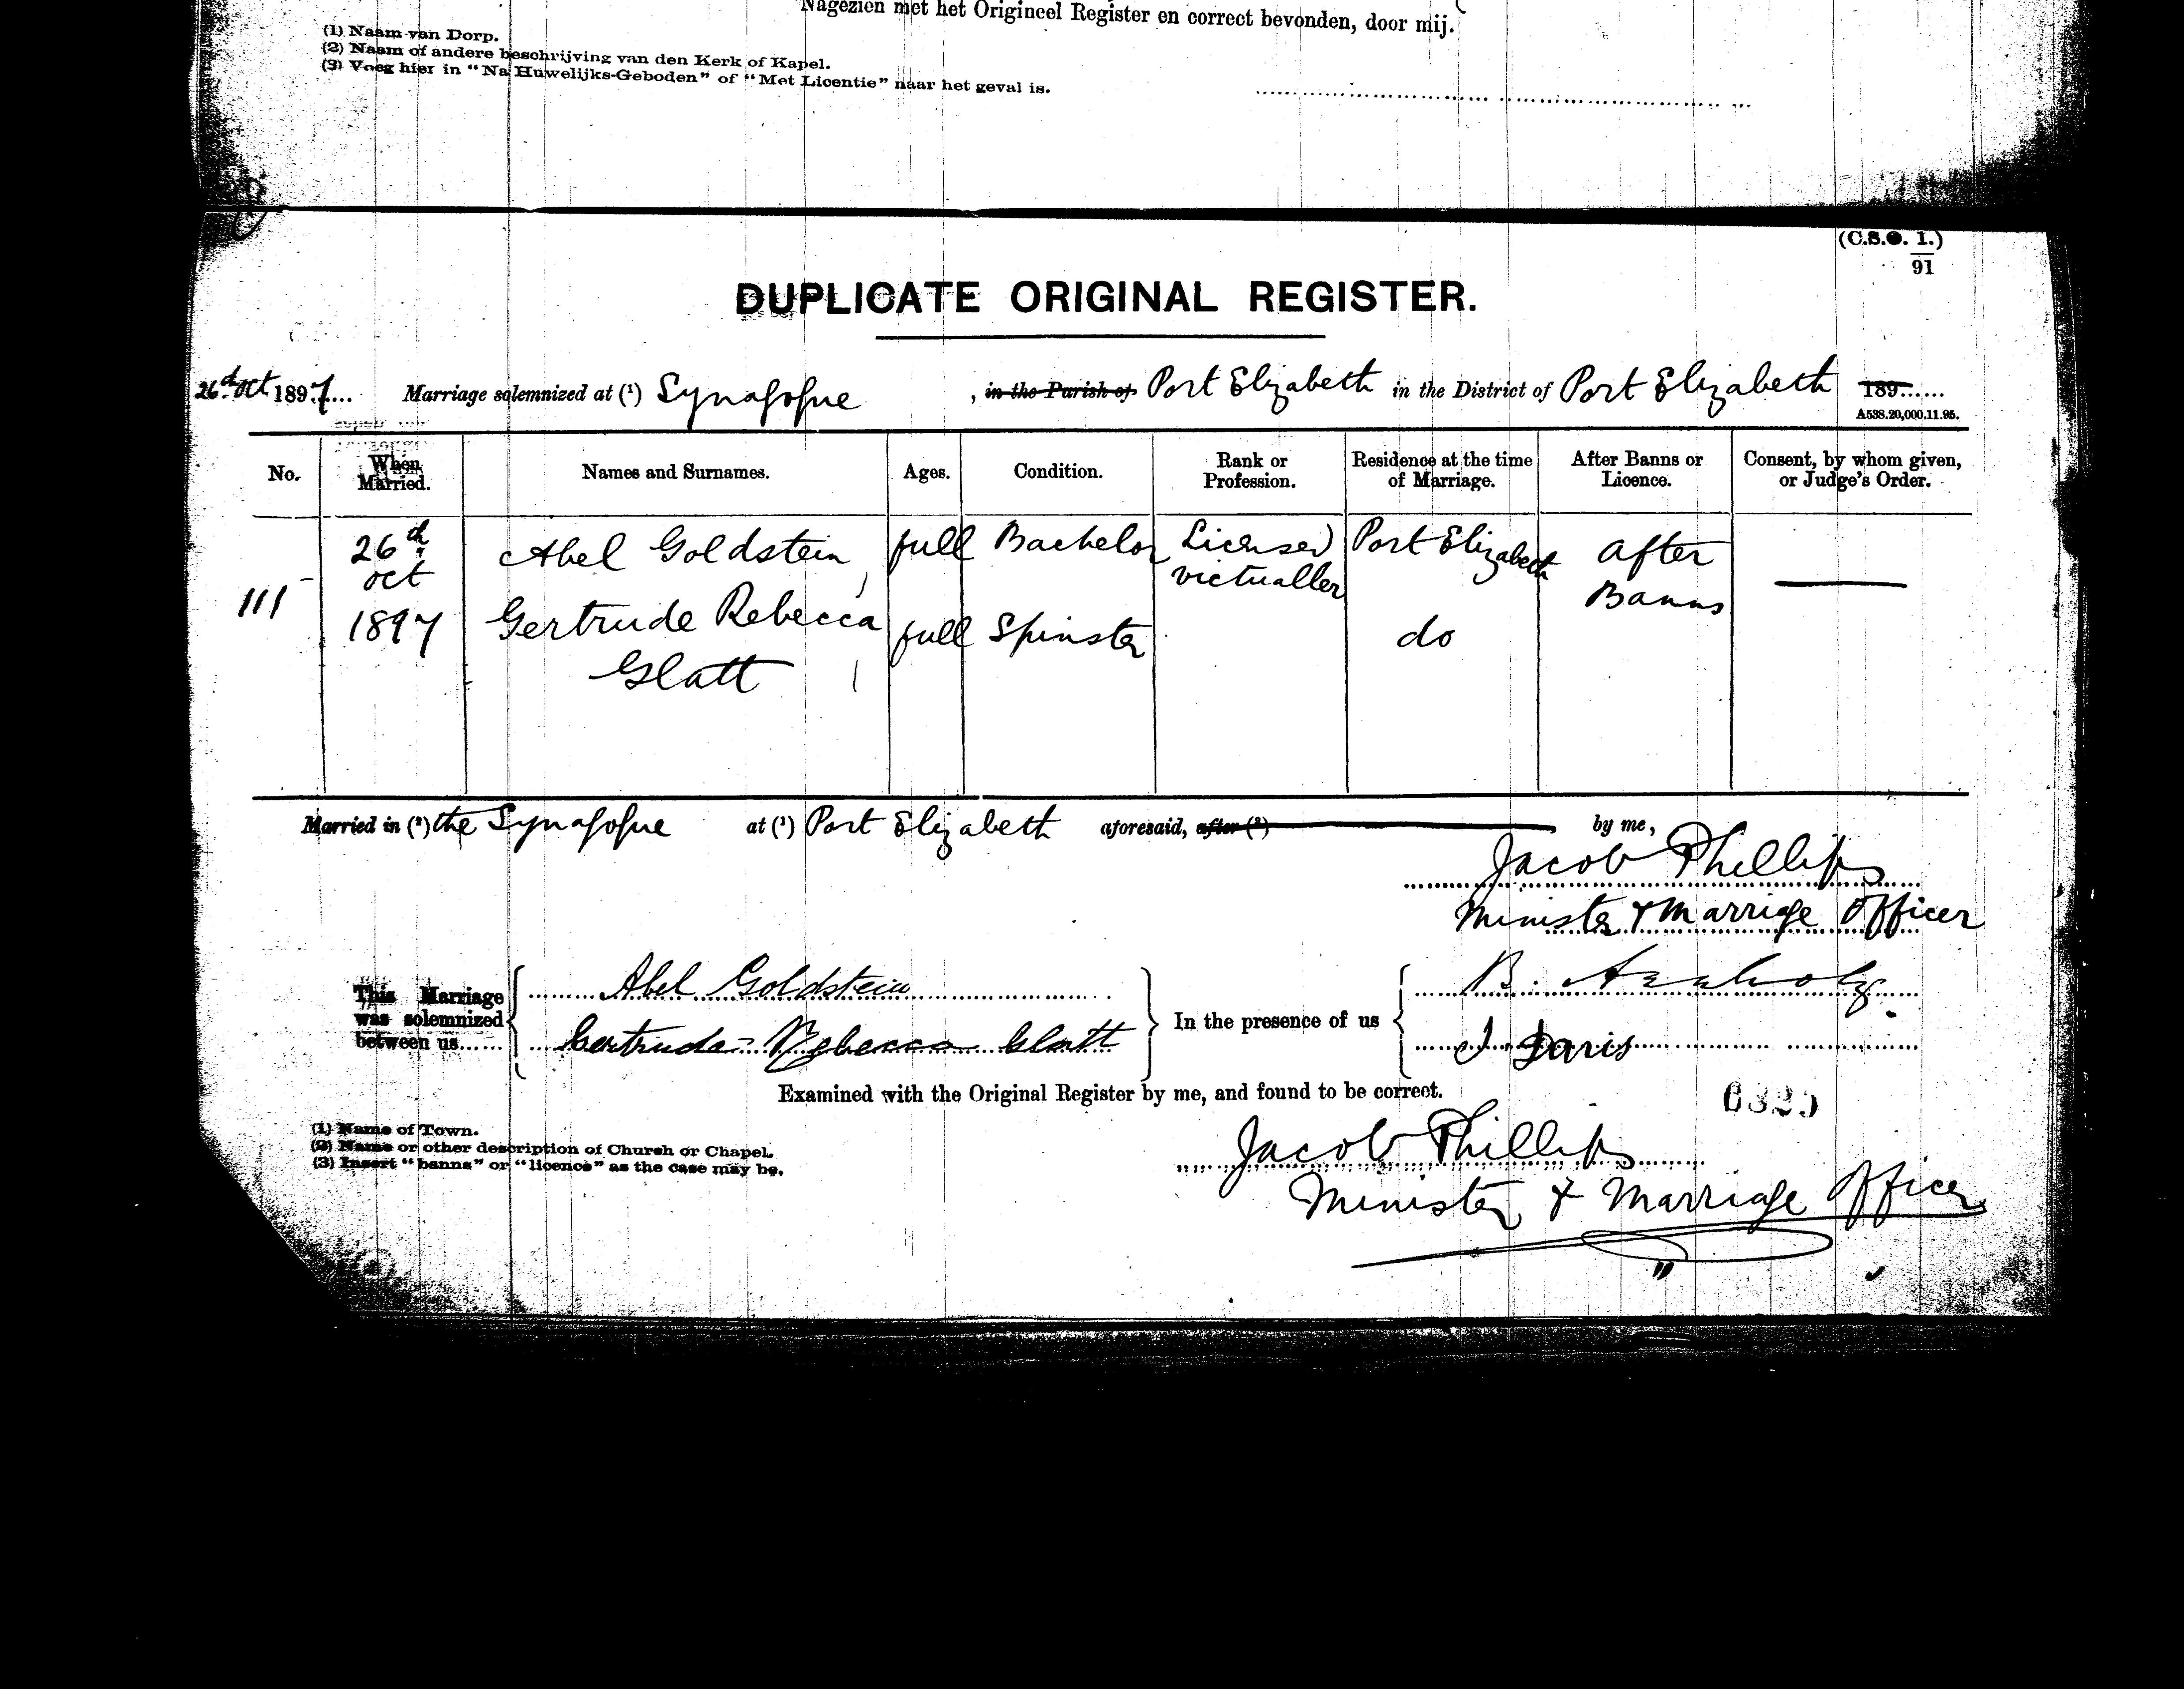 Nagezien met het Origineel Register en correct bevonden, door mij.
(1) Naam van Dorp.
(2) Naam of andere beschrijving van den Kerk of Kapel.
(3) Voeg hier in "Na Huwelijks-Geboden" of "Met Licentie" naar het geval is.
(C.S.O. 1.)
91
DUPLICATE ORIGINAL REGISTER.
26th Oct 1897 Marriage solemnized at (1) Synagogue, in the Parish of Port Elizabeth in the District of Port Elizabeth 189......
A538.20,000.11.95.
No. When Married. Names and Surnames. Ages. Condition. Rank or Profession. Residence at the time of Marriage. After Banns or Licence. Consent, by whom given, or Judge's Order.
111 26th Oct 1897 Abel Goldstein, full Bachelor Licensed victualler Port Elizabeth After Banns
Gertrude Rebecca Glatt full Spinster do
Married in (2) the Synagogue at (1) Port Elizabeth aforesaid, after (3) by me,
Jacob Phillips
Minister & Marriage Officer
This Marriage was solemnized between us......
Abel Goldstein
Gertrude Rebecca Glatt
In the presence of us
B.
J. Davis
Examined with the Original Register by me, and found to be correct.
6325
(1) Name of Town.
(2) Name or other description of Church or Chapel.
(3) Insert "banns" or "licence" as the case may be.
Jacob Phillips
Minister & Marriage Officer